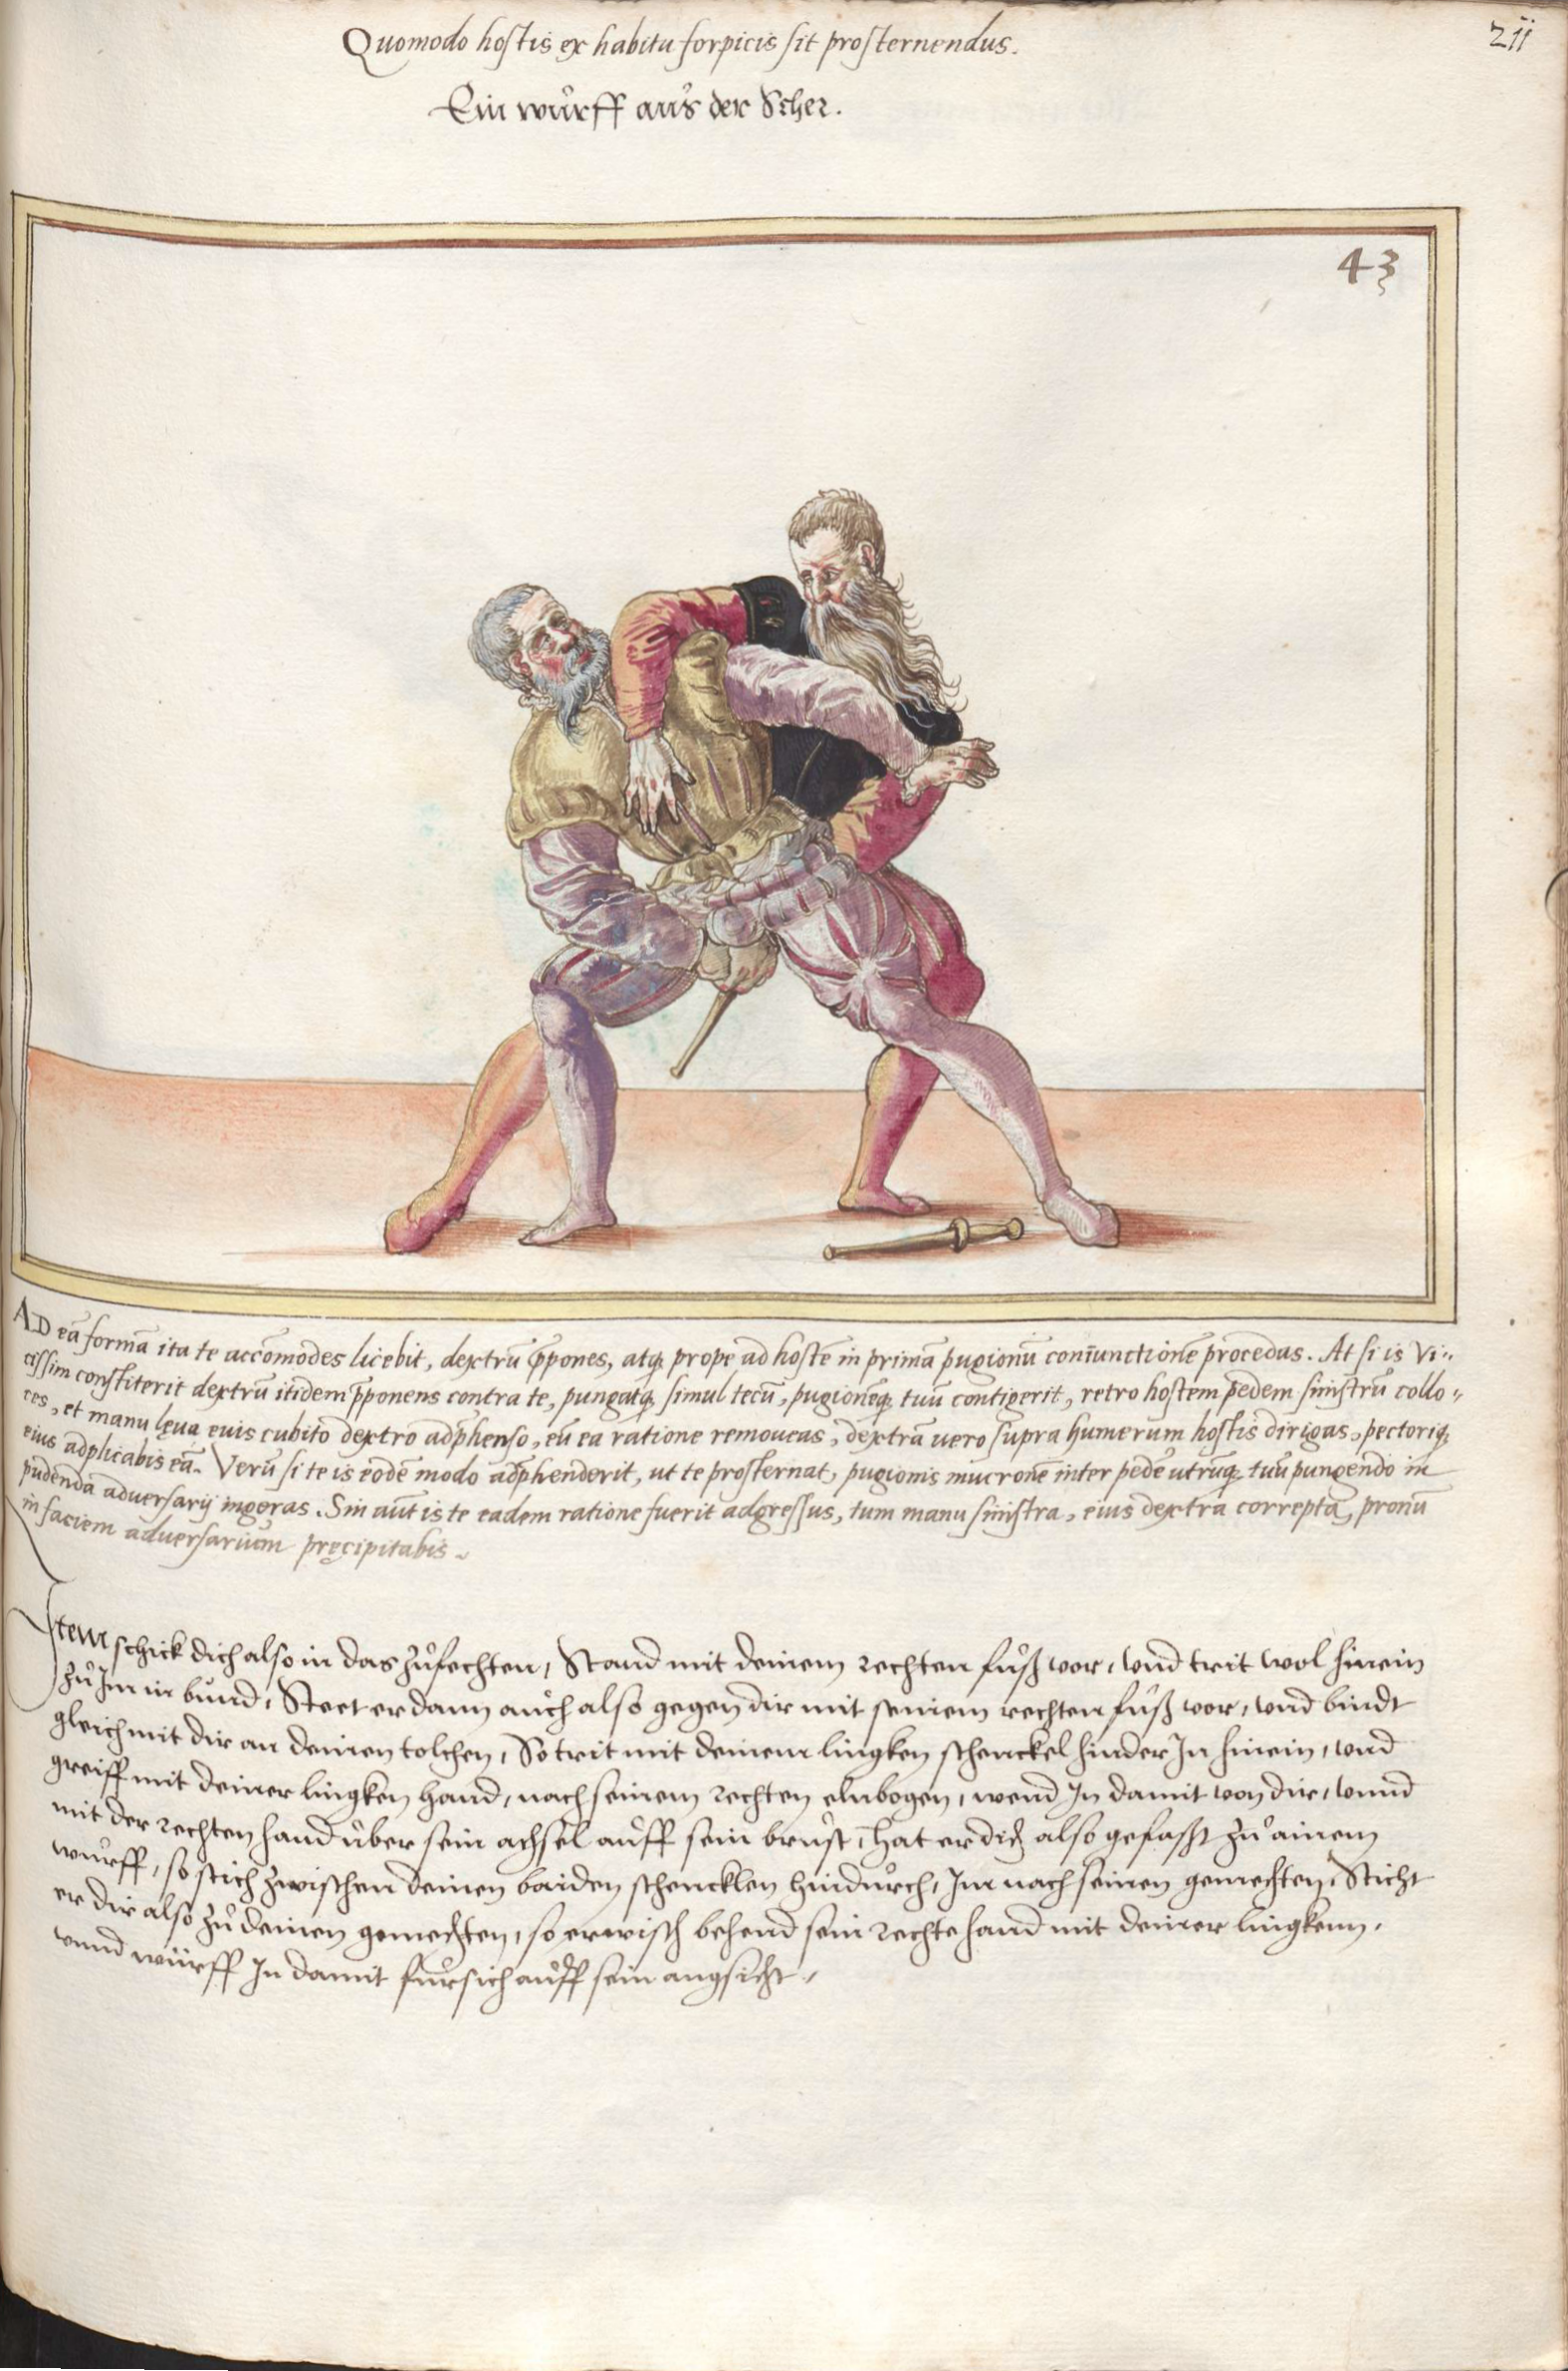 Quomodo hostis ex habitu forpicis sit prosternendus.
211
Ein wůrff aůs der Scher.
43
AD eā formā ita te accōmodes licebit, dextrū p̄pones, atq̢ prope ad hostē in primā pugionū coniunctionē procedas. At si is Vi:,
cissim constiterit dextrū itidem p̄ponens contra te, pungatq̢ simul tecū, pugionēq̢ tuū contigerit, retro hostem pedem sinistrū collo:,
ces, et manu lęua euis cubito dextro adp̄henso, eū ea ratione remoueas, dextrā uero supra humerum hostis dirigas, pectoriq̢
eius adplicabis eā. Verū si te is eodē modo adp̄henderit, ut te prosternat, pugionis mucronē inter pedē utrūq̢ tuū pungendo in
pudenda aduersarij ingeras. Sin aūt is te eadem ratione fuerit adgressus, tum manu sinistra, eius dextra correpta, pronū
in faciem aduersariūm pręcipitabis.
Item schick dich also in das zůfechten, Stand mit deinem rechten fůß vor, vnd trit wol hinein
zů Jm in bůnd, Steet er dann aůch also gegen dir mit seinem rechten fůß vor, vnd bindt
gleich mit dir an deinen tolchen, So trit mit deinem lingken schenckel hinder Jn hinein, vnd
greiff mit deiner lingken hand, nach seinem rechten elnbogen, wend Jn damit von dir, vnnd
mit der rechten hand ůber sein achsel aůff sein brůst, hat er dich also gefasst zů ainem
wůrff, so stich zwischen deinen baiden schencklen hindůrch, Jm nach seinen gemechten, Sticht
er dir also zů deinen gemechten, so erwisch behend sein rechte hand mit deiner lingkenn,
vnnd würff Jn damit fůrsich aůff sein angsicht,